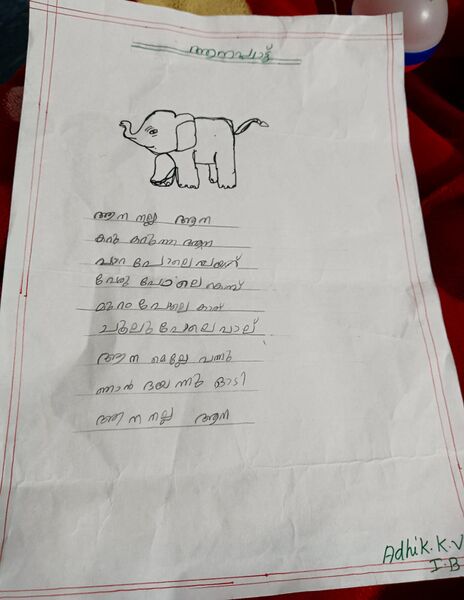 ആനപ്പാട്ട്
ആന നല്ല ആന
കറു കറുത്ത ആന
പാറ പോലെ വയറ്
വേരു പോലെ കൊമ്പ്
മുറം പോലെ കാത്
ചൂലു പോലെ വാല്
ആന മെല്ലെ വന്നു
ഞാൻ ഭയന്നു ഓടി
ആന നല്ല ആന
Adhik.K.V
I.B